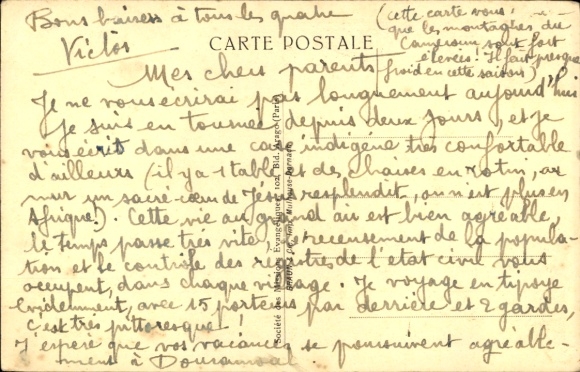 Bons baisers à tous les quatre
Victor
(cette carte vous
que les montagnes du
Cameroun sont fort
élevées ! Il fait presque
froid en cette saison)
CARTE POSTALE
Mes chers parents
Je ne vous écrirai pas longuement aujourd'hui
Je suis en tournée depuis deux jours, et je
vous écrit dans une case indigène très confortable
d'ailleurs (il y a 1 table et des chaises en rotin, au
mur un sacré-cœur de Jésus resplendit, on n'est plus en
Afrique!). Cette vie au grand air est bien agréable,
le temps passe très vite, le recensement de la popula-
tion et le contrôle des registres de l'état civil vous
occupent, dans chaque village. Je voyage en tipoye
évidemment, avec 15 porteurs par derrière et 2 gardes,
c'est très pittoresque !
J'espère que vos vacances se poursuivent agréable-
ment à
Société des Missions Evangéliques, 102, Bld. Arago (Paris)